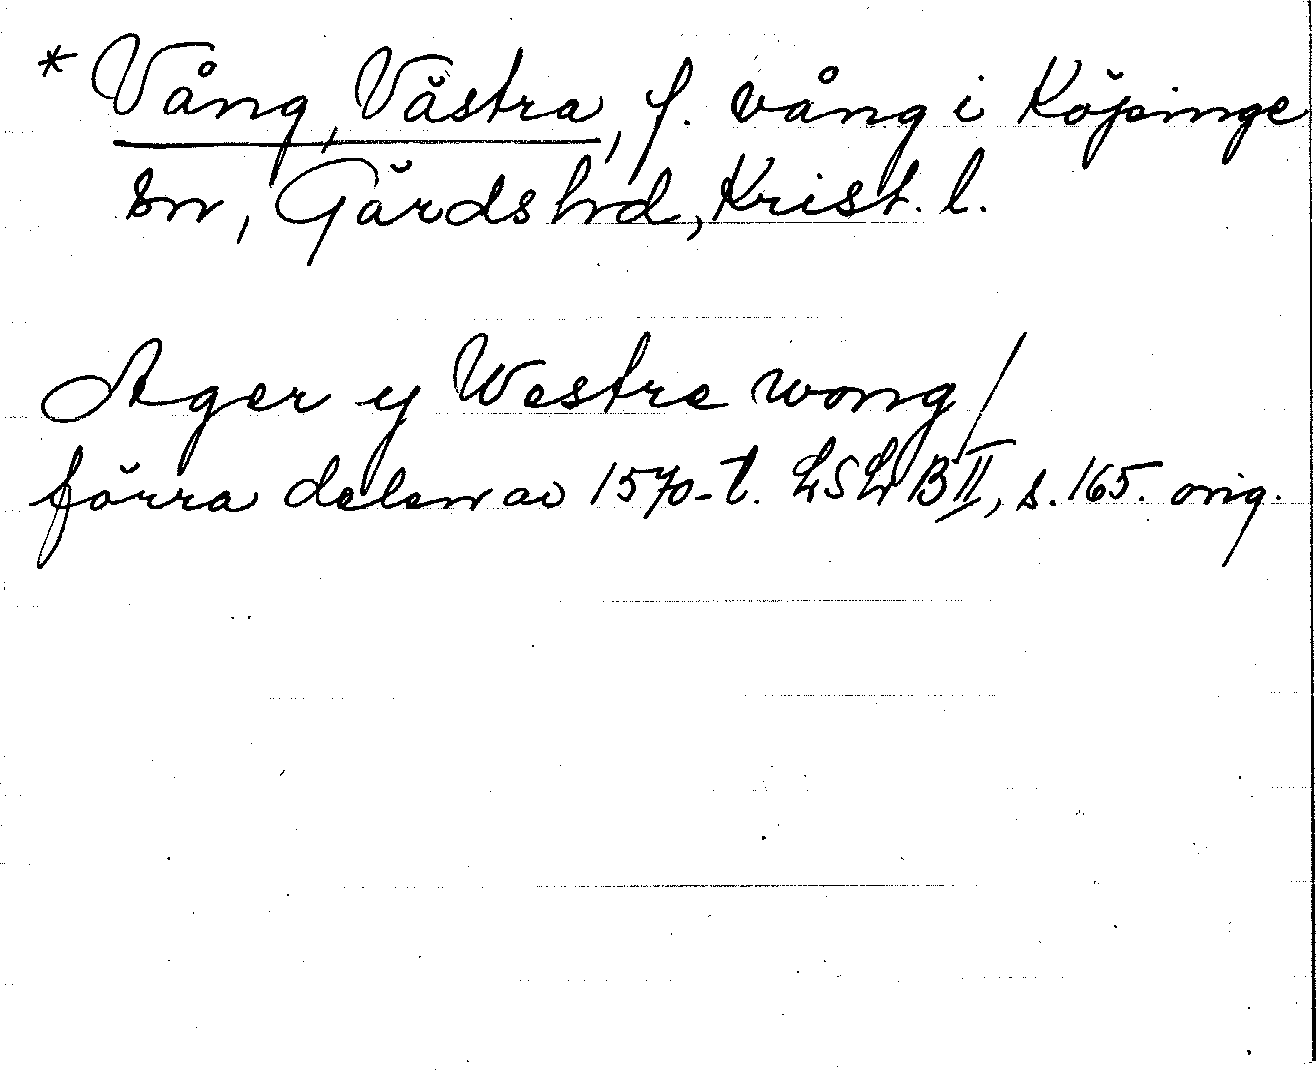 * Vång, Västra, f. vång i Köpinge
sn, Gärds hd, Krist. l.
Ager y Westre wong/
förra delen av 1570-t. LSL B II, s. 165. orig.